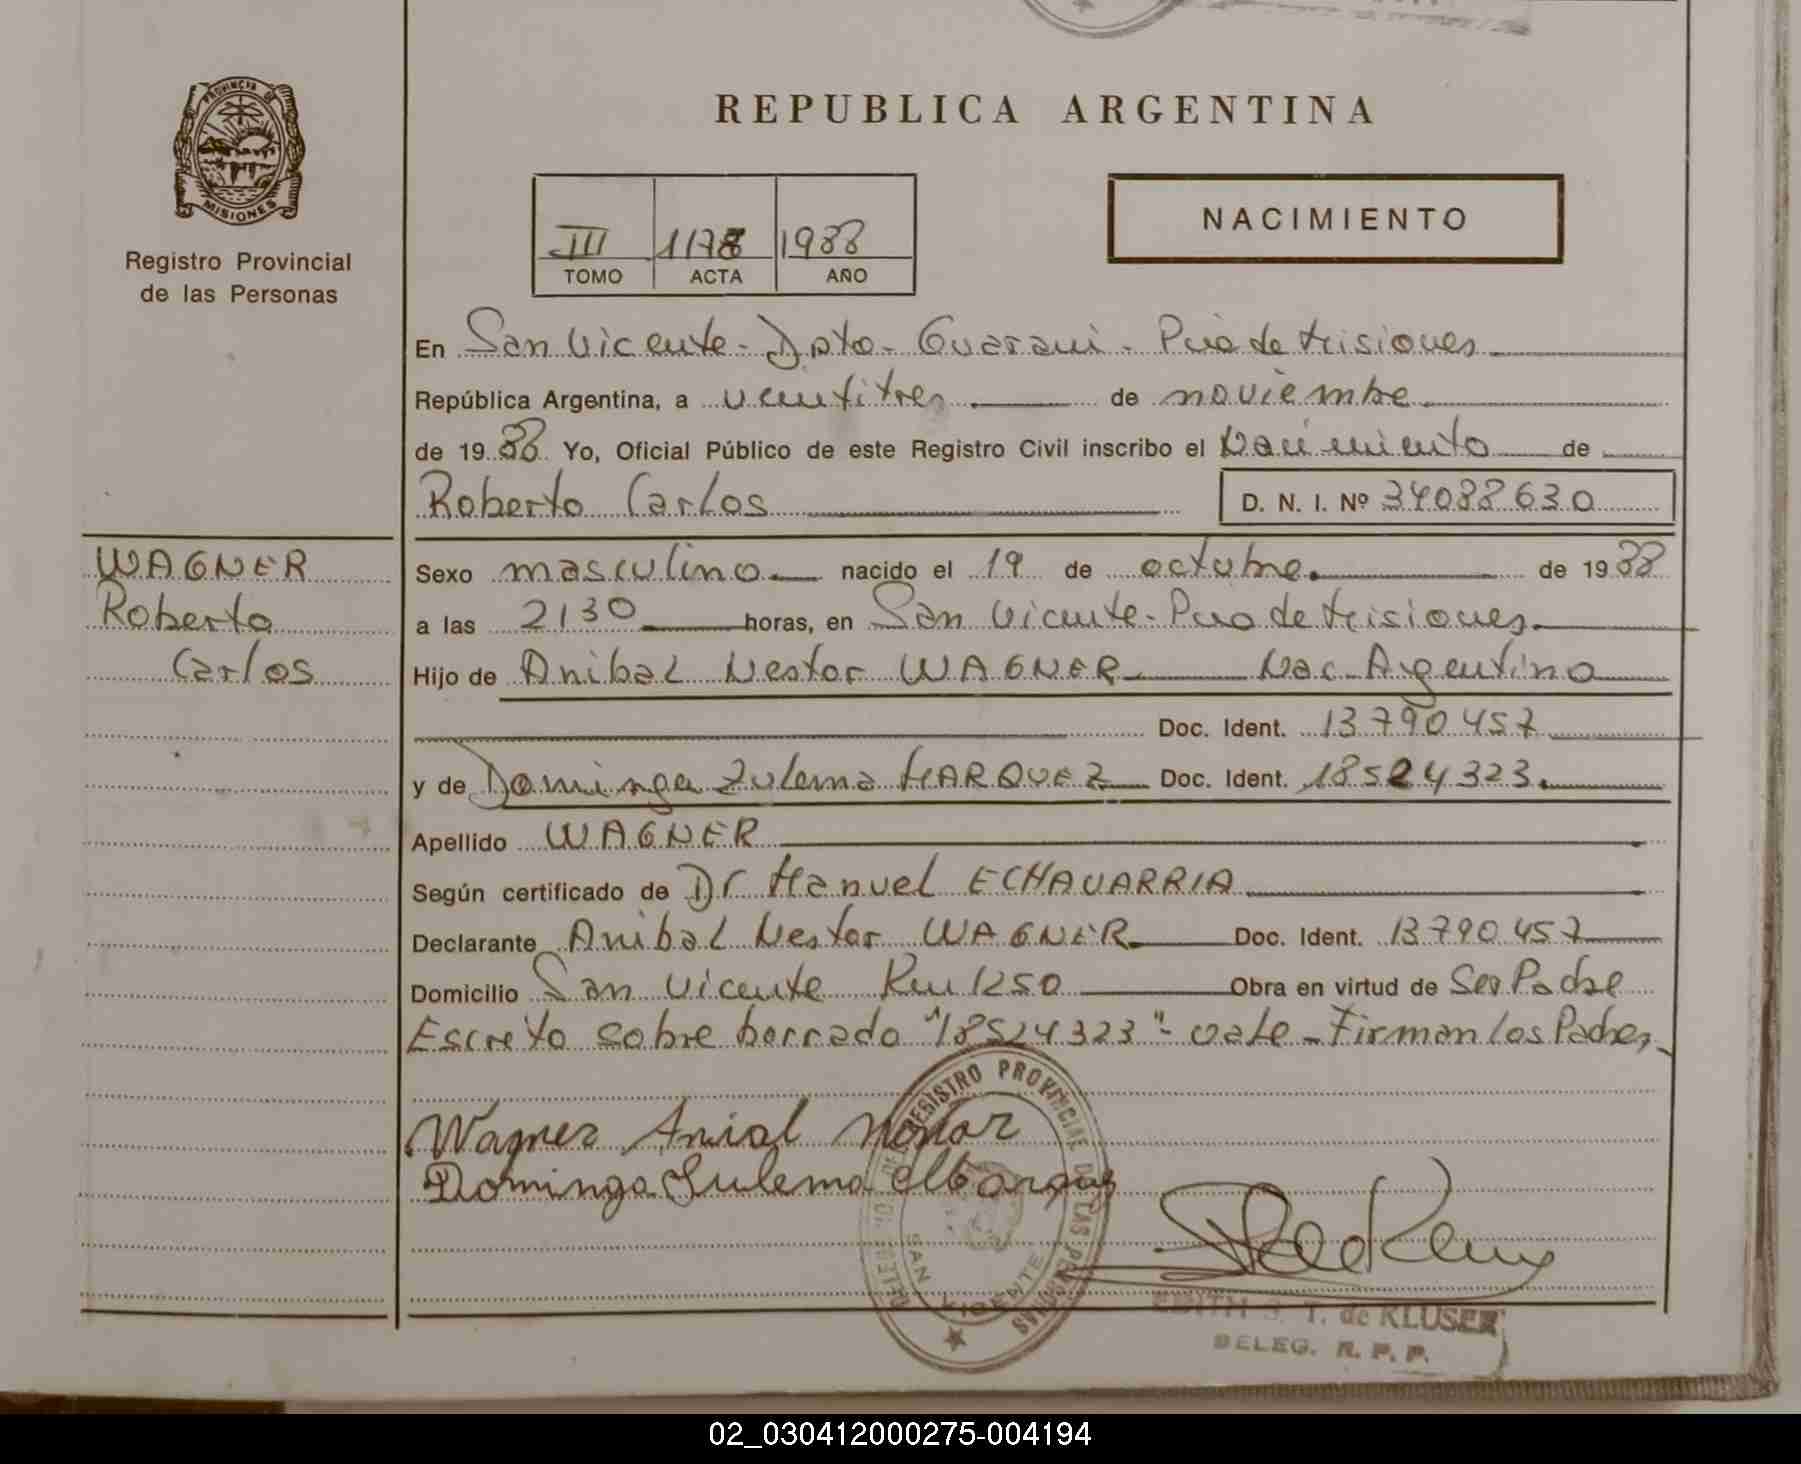 REPUBLICA ARGENTINA
PROVINCIA DE
MISIONES
Registro Provincial
de las Personas
NACIMIENTO
III 1178 1988
TOMO ACTA AÑO
En San Vicente - Dpto - Guarani - Pcia de Misiones
República Argentina, a veintitres de noviembre
de 1988 Yo, Oficial Público de este Registro Civil inscribo el Nacimiento de
Roberto Carlos D. N. I. Nº 34088630
WAGNER
Roberto
Carlos
Sexo masculino nacido el 19 de octubre de 1988
a las 2130 horas, en San Vicente - Pcia de Misiones
Hijo de Anibal Nestor WAGNER Nac. Argentino
Doc. Ident. 13790457
y de Dominga Zulema MARQUEZ Doc. Ident. 18524323
Apellido WAGNER
Según certificado de Dr Manuel ECHAVARRIA
Declarante Anibal Nestor WAGNER Doc. Ident. 13790457
Domicilio San Vicente Km 1250 Obra en virtud de Ser Padre
Escrito sobre borrado "18524323" - vale - Firman los Padres
Wagner Anival Nestor
Dominga Sulema Marquez
REGISTRO PROVINCIAL DE LAS PERSONAS
SAN VICENTE
EDITH S. T. de KLUSER
DELEG. R. P. P.
02_030412000275-004194